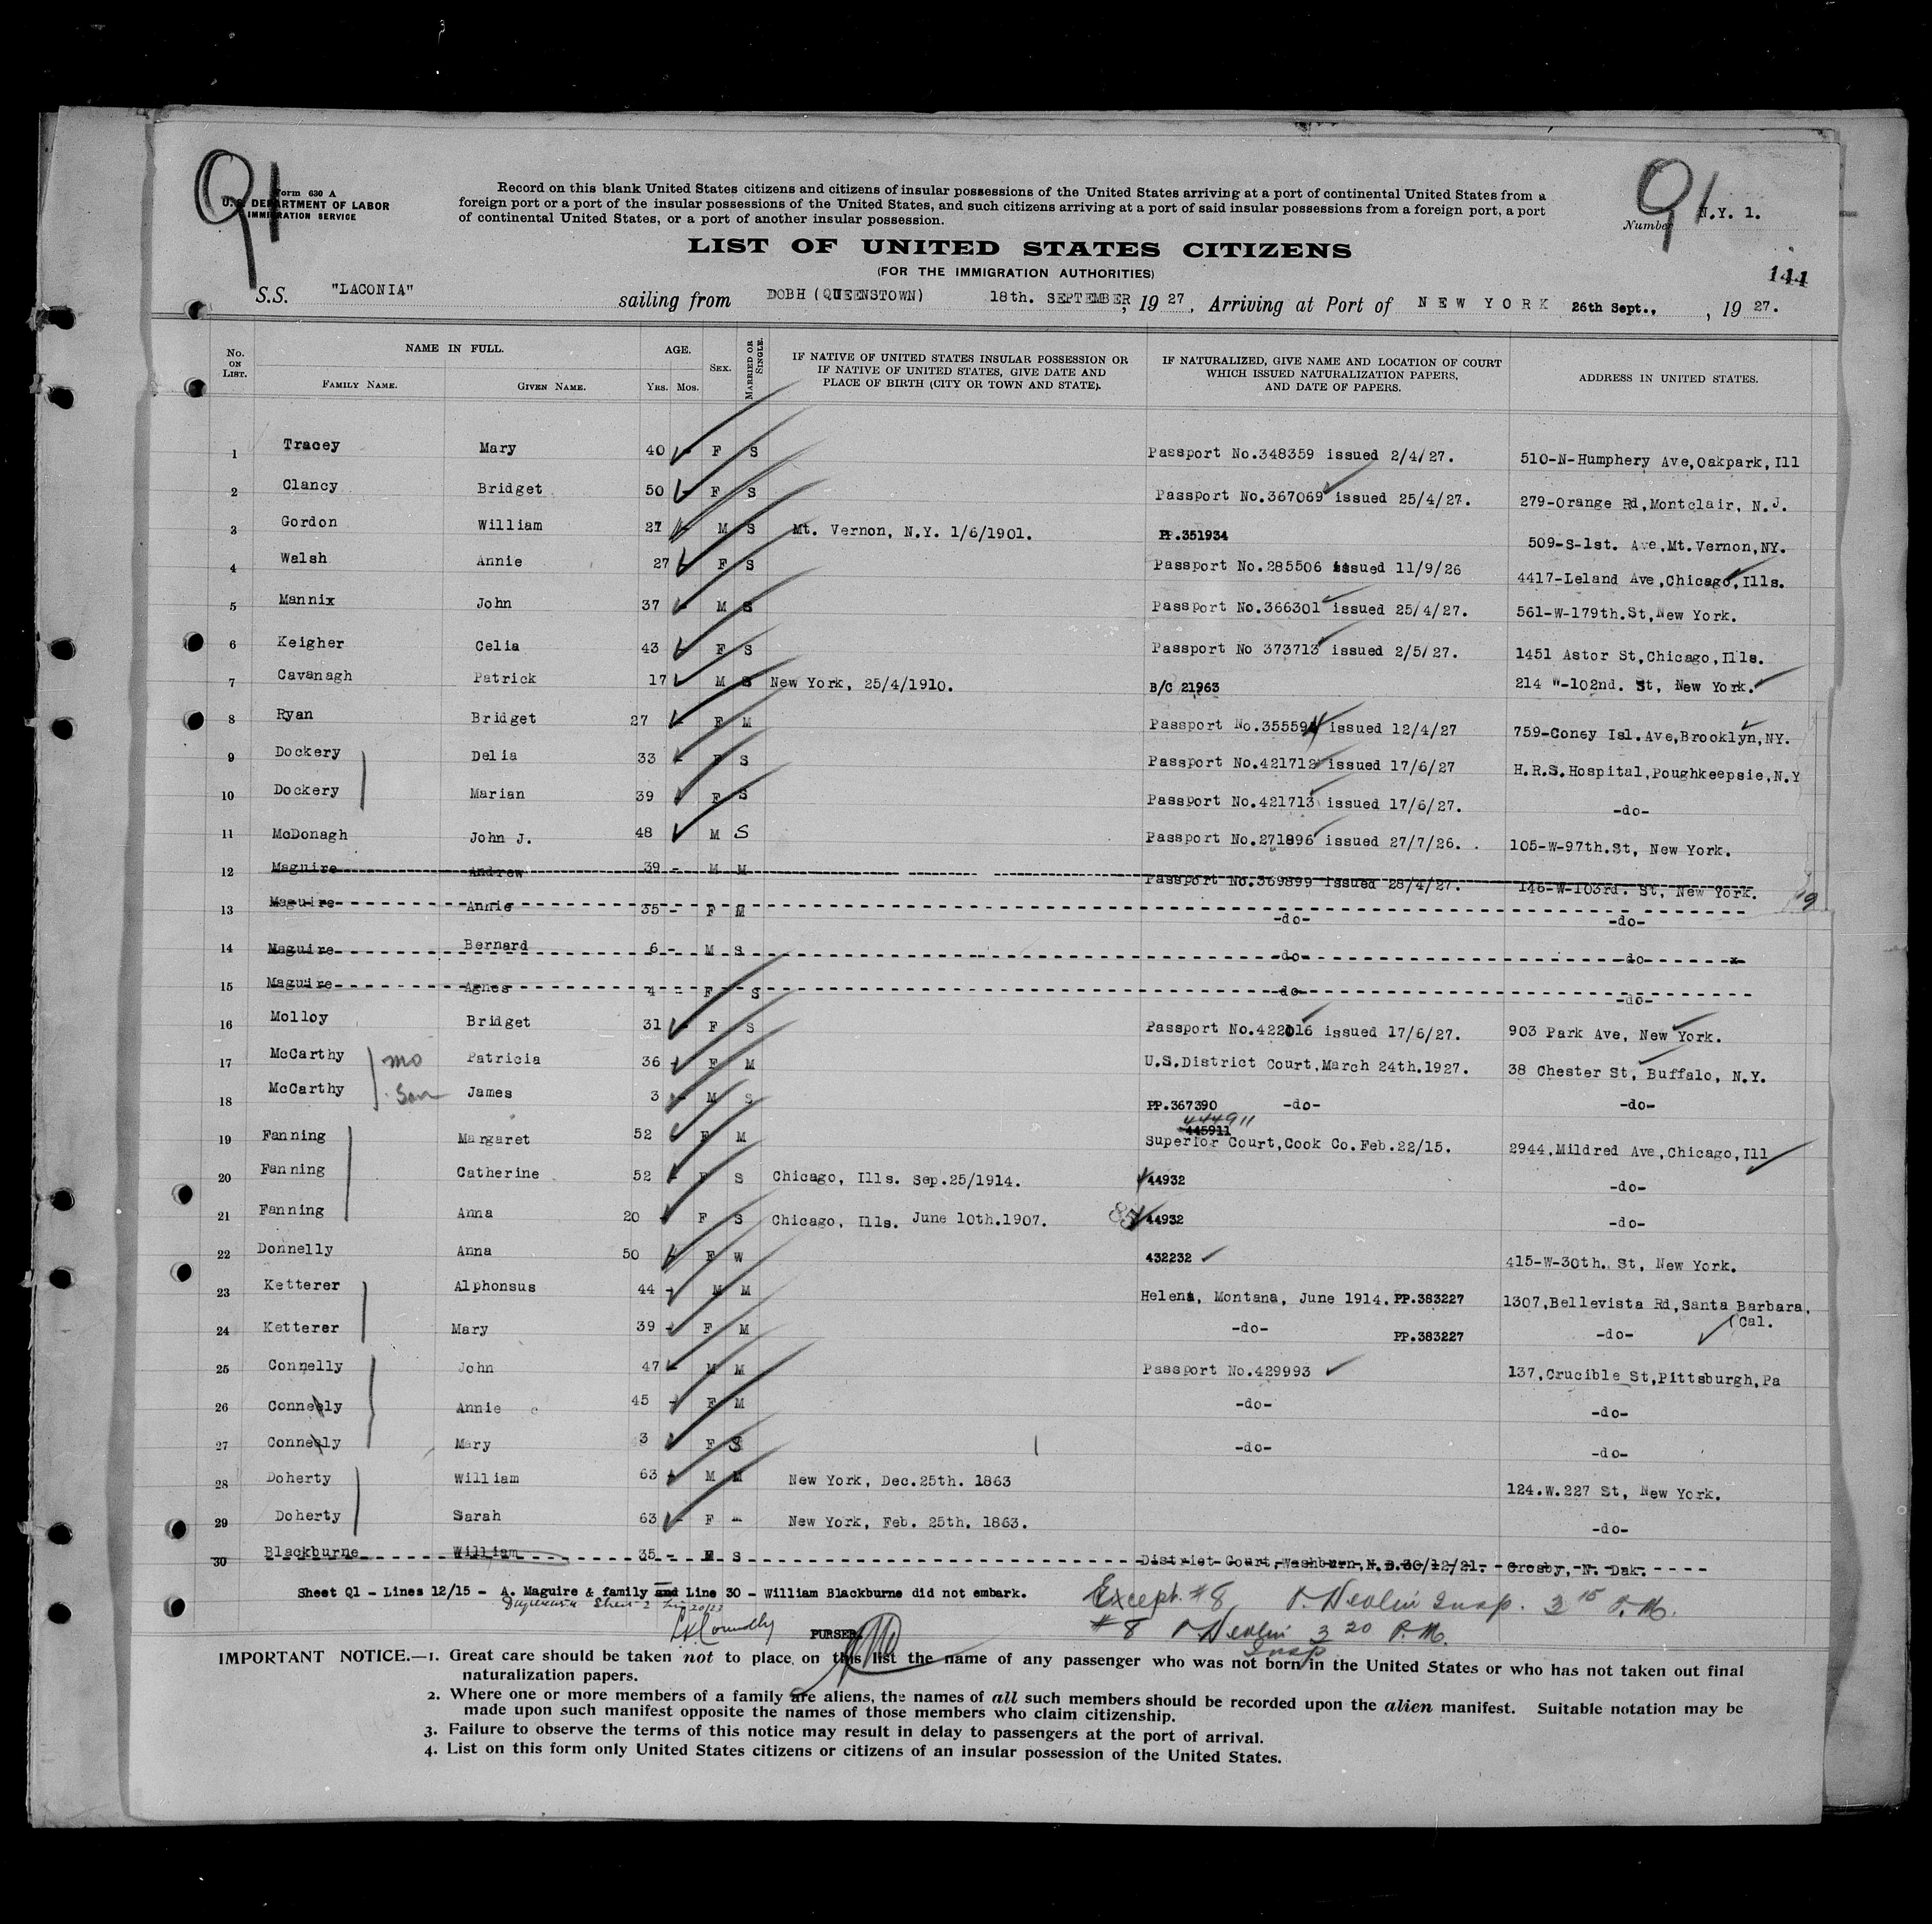 Q1
Form 630 A
U.S. DEPARTMENT OF LABOR
IMMIGRATION SERVICE
Record on this blank United States citizens and citizens of insular possessions of the United States arriving at a port of continental United States from a
foreign port or a port of the insular possessions of the United States, and such citizens arriving at a port of said insular possessions from a foreign port, a port
of continental United States, or a port of another insular possession.
Q1
Number N.Y. 1.
LIST OF UNITED STATES CITIZENS
(FOR THE IMMIGRATION AUTHORITIES)
144
S.S. "LACONIA" sailing from DOBH (QUEENSTOWN) 18th. SEPTEMBER, 1927, Arriving at Port of NEW YORK 26th Sept., , 1927.
No. ON LIST. NAME IN FULL. FAMILY NAME. GIVEN NAME. AGE. Yrs. Mos. SEX. MARRIED OR SINGLE. IF NATIVE OF UNITED STATES INSULAR POSSESSION OR IF NATIVE OF UNITED STATES, GIVE DATE AND PLACE OF BIRTH (CITY OR TOWN AND STATE). IF NATURALIZED, GIVE NAME AND LOCATION OF COURT WHICH ISSUED NATURALIZATION PAPERS, AND DATE OF PAPERS. ADDRESS IN UNITED STATES.
1 Tracey Mary 40 - F S Passport No.348359 issued 2/4/27. 510-N-Humphery Ave,Oakpark,Ill
2 Clancy Bridget 50 - F S Passport No.367069 issued 25/4/27. 279-Orange Rd,Montclair, N.J.
3 Gordon William 27 - M S Mt. Vernon, N.Y. 1/6/1901. PP.351934 509-S-1st. Ave,Mt.Vernon,NY.
4 Walsh Annie 27 - F S Passport No.285506 issued 11/9/26 4417-Leland Ave,Chicago,Ills.
5 Mannix John 37 - M S Passport No.366301 issued 25/4/27. 561-W-179th.St,New York.
6 Keigher Celia 43 - F S Passport No 373713 issued 2/5/27. 1451 Astor St,Chicago,Ills.
7 Cavanagh Patrick 17 - M S New York, 25/4/1910. B/C 21963 214 W-102nd. St, New York.
8 Ryan Bridget 27 - F M Passport No.355594 issued 12/4/27 759-Coney Isl.Ave,Brooklyn,NY.
9 Dockery Delia 33 - F S Passport No.421712 issued 17/6/27 H.R.S.Hospital,Poughkeepsie,N.Y
10 Dockery Marian 39 - F S Passport No.421713 issued 17/6/27. -do-
11 McDonagh John J. 48 M S Passport No.271896 issued 27/7/26. 105-W-97th.St, New York.
12 Maguire Andrew 39 - M M Passport No.369899 issued 28/4/27. 146-W-103rd. St, New York.
13 Maguire Annie 35 - F M -do- -do-
14 Maguire Bernard 6 - M S -do- -do-
15 Maguire Agnes 4 - F S -do- -do-
16 Molloy Bridget 31 - F S Passport No.422016 issued 17/6/27. 903 Park Ave, New York.
17 McCarthy mo Patricia 36 - F M U.S.District Court,March 24th.1927. 38 Chester St, Buffalo, N.Y.
18 McCarthy Son James 3 - M S PP.367390 -do- -do-
444911
445911
19 Fanning Margaret 52 - F M Superior Court,Cook Co.Feb.22/15. 2944,Mildred Ave,Chicago,Ill
20 Fanning Catherine 52 - F S Chicago, Ills. Sep.25/1914. 44932 -do-
21 Fanning Anna 20 - F S Chicago, Ills. June 10th.1907. 44932 -do-
22 Donnelly Anna 50 - F W 432232 415-W-30th. St, New York.
23 Ketterer Alphonsus 44 - M M Helena, Montana, June 1914. PP.383227 1307,Bellevista Rd,Santa Barbara,
(Cal.
24 Ketterer Mary 39 - F M -do- PP.383227 -do-
25 Connelly John 47 - M M Passport No.429993 137,Crucible St,Pittsburgh,Pa
26 Conneely Annie 45 - F M -do- -do-
27 Conneely Mary 3 - F S -do- -do-
28 Doherty William 63 - M M New York, Dec.25th. 1863 124.W.227 St, New York.
29 Doherty Sarah 63 - F - New York, Feb. 25th. 1863. -do-
30 Blackburne William 35 - M S District Court,Washburn,N.D.30/12/21. Crosby, N. Dak.
Sheet Q1 - Lines 12/15 - A. Maguire & family and Line 30 - William Blackburne did not embark.
Except #8 P. Nevlin Insp. 3 15 P.M.
#8 P Nevlin Insp 3 20 P.M.
PURSER.
IMPORTANT NOTICE.—1. Great care should be taken not to place on this list the name of any passenger who was not born in the United States or who has not taken out final
naturalization papers.
2. Where one or more members of a family are aliens, the names of all such members should be recorded upon the alien manifest. Suitable notation may be
made upon such manifest opposite the names of those members who claim citizenship.
3. Failure to observe the terms of this notice may result in delay to passengers at the port of arrival.
4. List on this form only United States citizens or citizens of an insular possession of the United States.